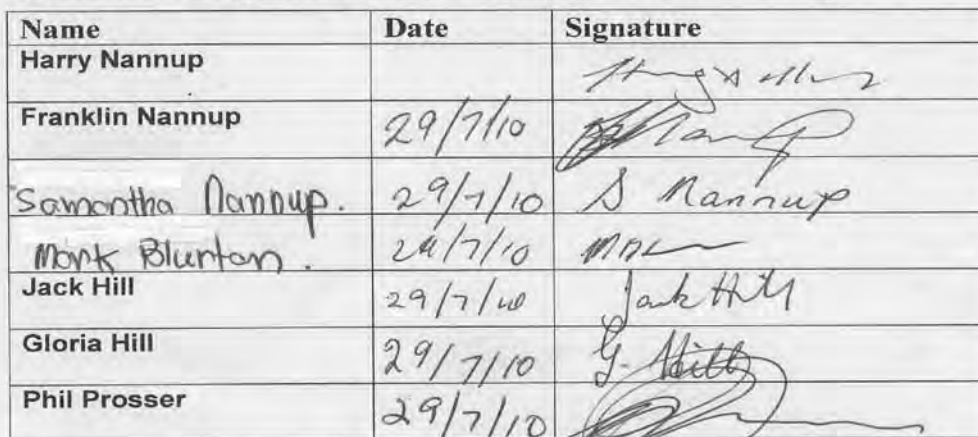 Name Date Signature
Harry Nannup
Franklin Nannup 29/7/10
Samantha Nannup. 29/7/10 S Nannup
Mark Blurton. 29/7/10
Jack Hill 29/7/10 Jack Hill
Gloria Hill 29/7/10 G. Hill
Phil Prosser 29/7/10